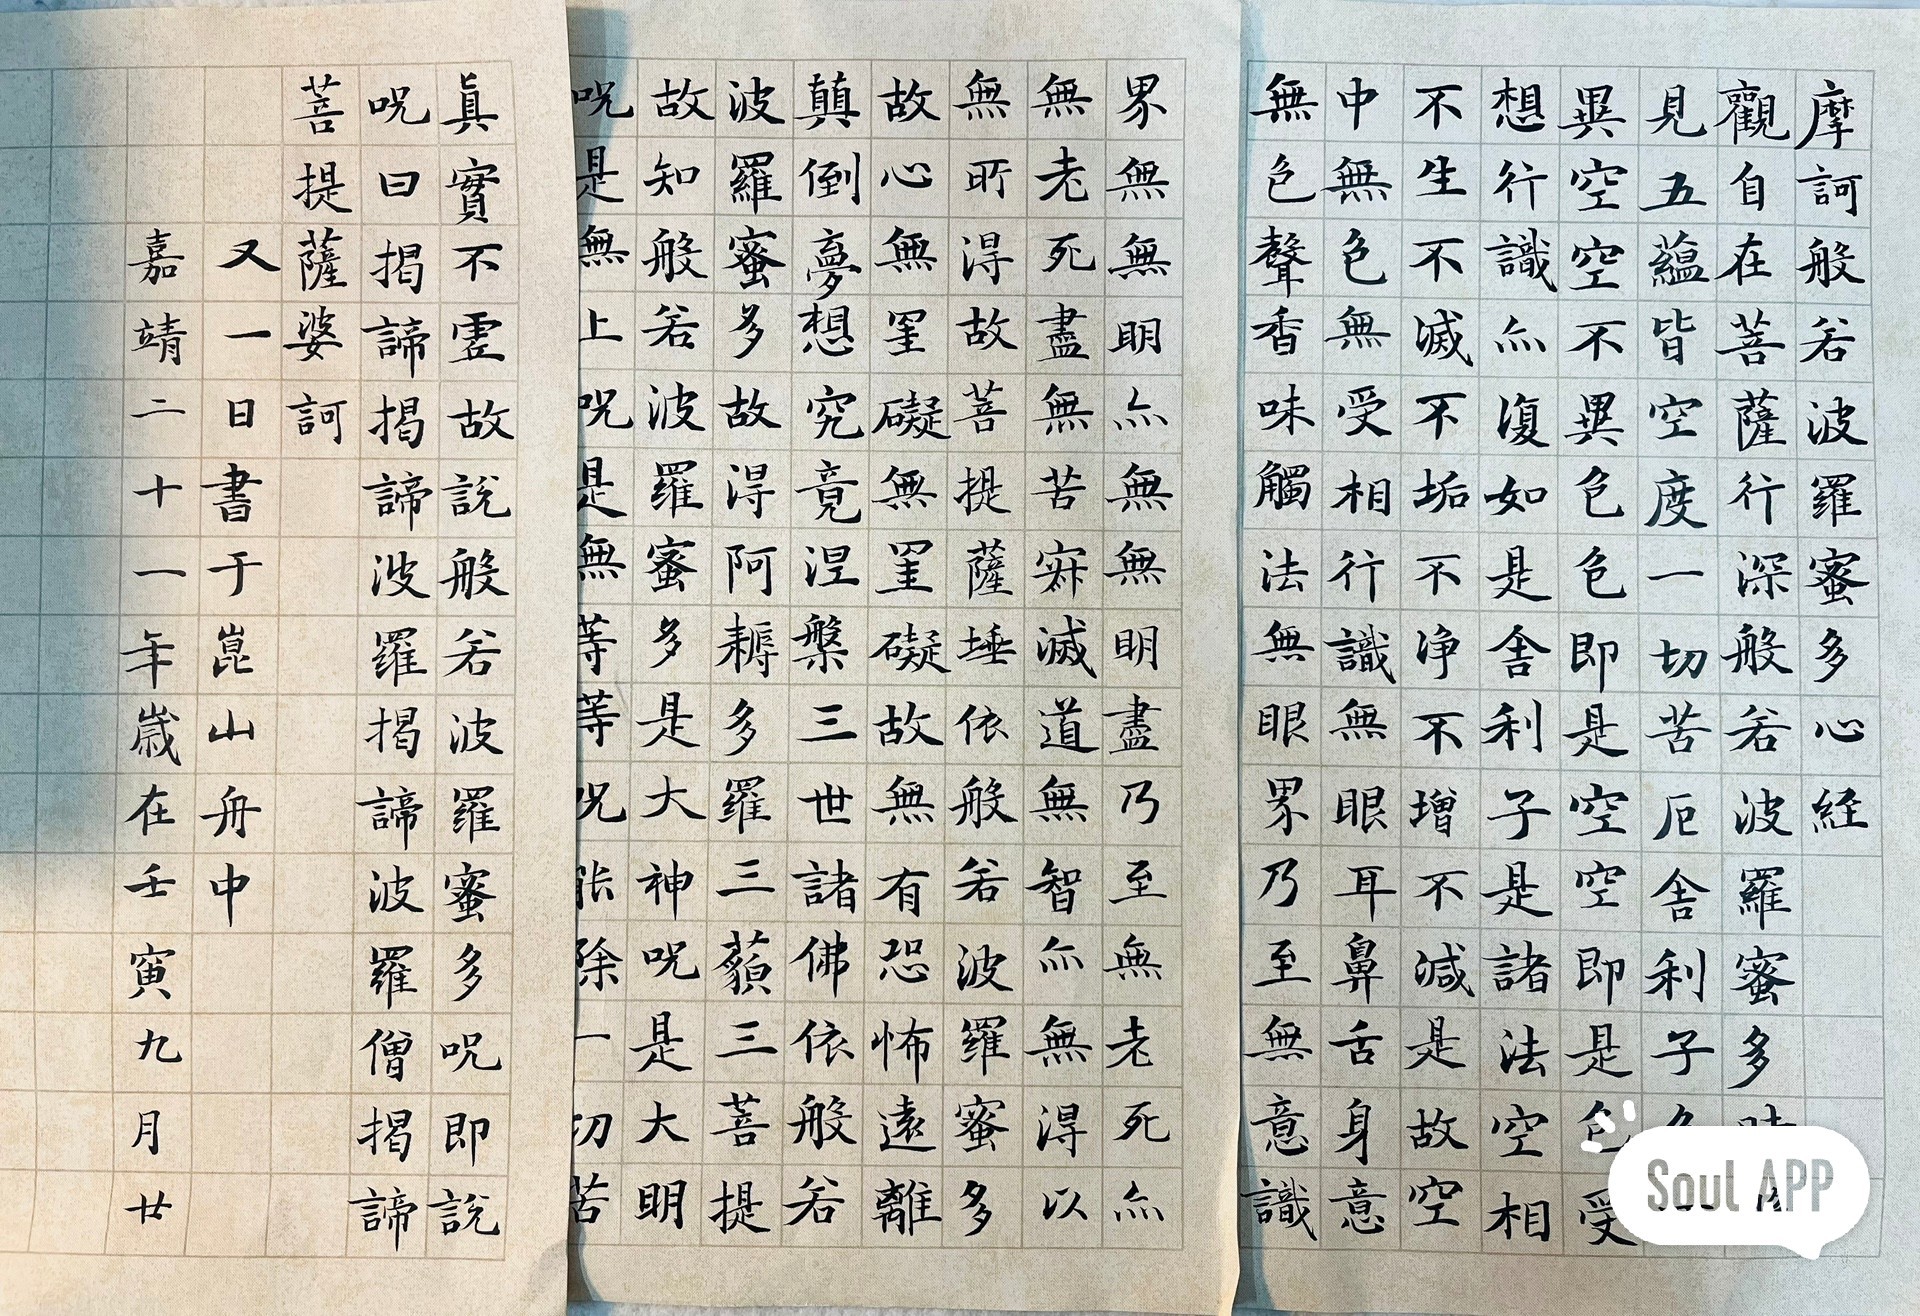 摩訶般若波羅蜜多心経
觀自在菩薩行深般若波羅蜜多
見五蘊皆空度一切苦厄舍利子
異空空不異色色即是空空即是色受
想行識亦復如是舍利子是諸法空相
不生不滅不垢不净不增不減是故空
中無色無受相行識無眼耳鼻舌身意
無色聲香味觸法無眼界乃至無意識
界無無明亦無無明盡乃至無老死亦
無老死盡無苦寂滅道無智亦無得以
無所得故菩提薩埵依般若波羅蜜多
故心無罣礙無罣礙故無有恐怖遠離
顛倒夢想究竟涅槃三世諸佛依般若
波羅蜜多故得阿耨多羅三藐三菩提
故知般若波羅蜜多是大神呪是大明
呪是無上呪是無等等呪能除一切苦
真實不虛故說般若波羅蜜多呪即說
呪曰揭諦揭諦波羅揭諦波羅僧揭諦
菩提薩婆訶
又一日書于崑山舟中
嘉靖二十一年歲在壬寅九月廿
Soul APP